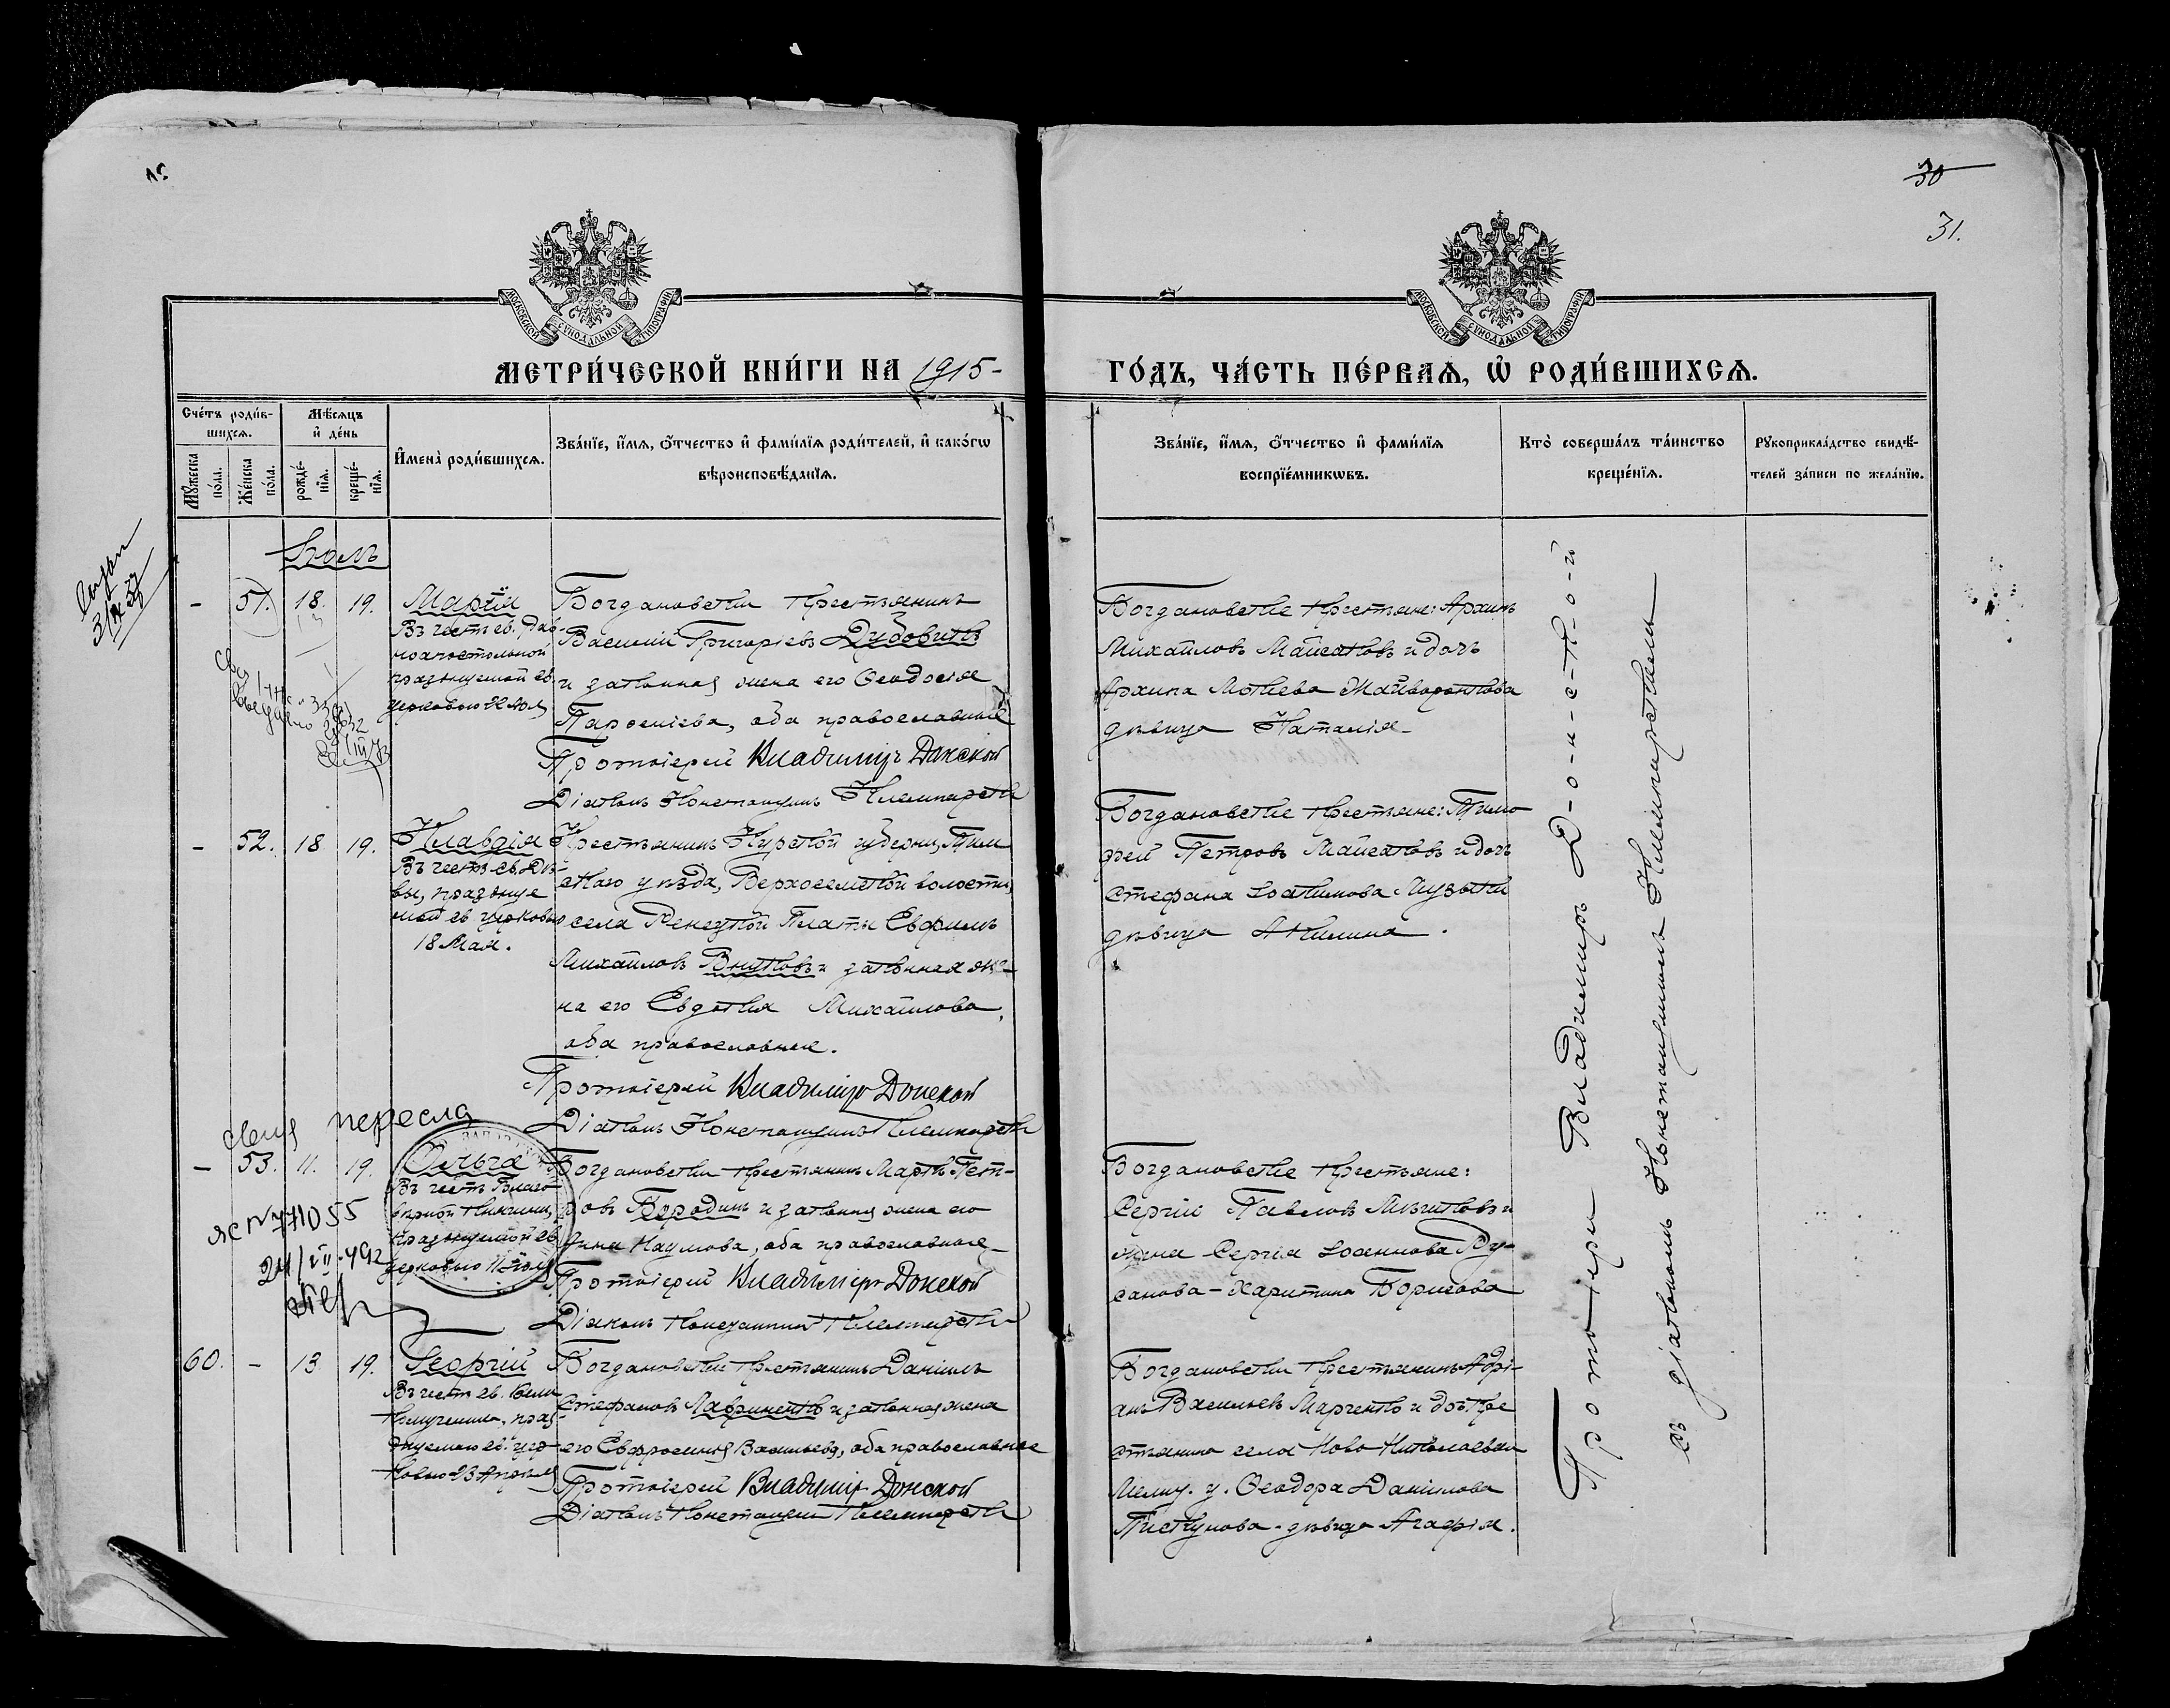 30
31.
МОСКОВСКОЙ СѴНОДАЛЬНОЙ ТИПОГРАФІИ
МОСКОВСКОЙ СѴНОДАЛЬНОЙ ТИПОГРАФІИ
МЕТРИ́ЧЕСКОЙ КНИ́ГИ НА 1915-
ГО́ДЪ, ЧА́СТЬ ПЕ́РВАѦ, Ѡ҆ РОДИ́ВШИХСѦ.
Сче́тъ роди́в-
шихсѧ.
Мꙋ́жеска по́ла.
Же́нска по́ла.
Мѣ́сѧцъ
и҆ де́нь
рожде́-
нїѧ.
креще́-
нїѧ.
И҆мена̀ роди́вшихсѧ.
Зва́нїе, и҆́мѧ, ѻ҆́тчество и҆ фами́лїѧ роди́телей, и҆ како́гѡ
вѣроисповѣ́данїѧ.
Зва́нїе, и҆́мѧ, ѻ҆́тчество и҆ фами́лїѧ
воспрїе́мникѡвъ.
Кто̀ соверша́лъ та́инство
креще́нїѧ.
Рꙋкоприкла́дство свидѣ́-
телей за́писи по жела́нїю.
Іюль
- 51. 18. 19. Марія
Въ честь св. Рав-
ноапостольной
празднуемой св.
церковью 22 Іюля
Богдановскій крестьянинъ
Василій Григоріевъ Дубовикъ
и законная жена его Ѳеодосія
Парѳеніева, оба православные
Протоіерей Владиміръ Донской
Діаконъ Константинъ Клемпарскій
Богдановскіе крестьяне: Архипъ
Михайловъ Майсаковъ и дочь
Архипа Мокіева Жайворонкова
дѣвица Наталія
- 52. 18 19. Клавдія
Въ честь св. Дѣ-
вы, праздную
мой св церковью
18 Мая.
Крестьянинъ Курской губерніи, Тим
скаго уѣзда, Верхосемской волости,
села Платы Евфимъ
Михайловъ Внуковъ и законная же-
на его Евдокія Михайлова,
оба православные.
Протоіерей Владиміръ Донской
Діаконъ Константинъ Клемпарскій
Богдановскіе крестьяне: Тимо
фей Петровъ Майсаковъ и дочь
Стефана Іоакимова Музыки
дѣвица Акилина.
- 53. 11. 19. Ольга
Въ честь Благо-
вѣрной Княгини,
празднуемой св.
церковью 11 Іюля
Богдановскій крестьянинъ Маркъ Пет-
ровъ Бородинъ и законная жена его
Анна Наумова, оба православные
Протоіерей Владиміръ Донской
Діаконъ Константинъ Клемпарскій
Богдановскіе крестьяне:
Сергій Павловъ и
жена Сергія Іоаннова Ру-
санова - Харитина Борисова
60. - 13. 19. Георгій
Въ честь св. Вели
комученика, праз-
днуемаго св. цер-
ковью 23 Апрѣля
Богдановскій крестьянинъ Даніилъ
Стефановъ Лавриненко и законная жена
его Евфросинія Васильева, оба православные
Протоіерей Владиміръ Донской
Діаконъ Константинъ Клемпарскій
Богдановскій крестьянинъ Адрі-
анъ Васильевъ Марченко и дочь кре
стьянина села Ново Николаевки
Мелит. у. Ѳеодора Данилова
Пискунова - дѣвица Агафія.
Протоіерей Владимиръ Д-о-н-с-к-о-й
съ діакономъ Константиномъ Клемпарскимъ